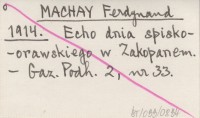 MACHAY Ferdynand
1914. Echo dnia spisko-
-orawskiego w Zakopanem.
- Gaz. Podh. 2, nr. 33.